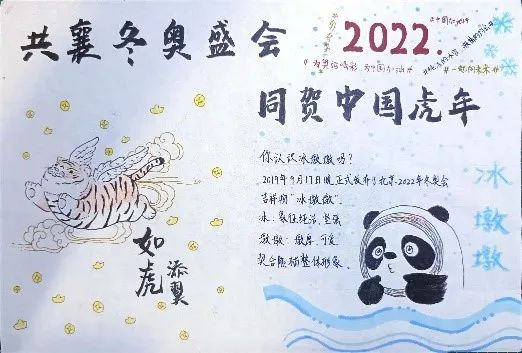 共襄冬奥盛会
2022.
同贺中国虎年
你认识冰墩墩吗?
2019年9月17日晚正式发布了北京2022年冬奥会
吉祥物"冰墩墩".
冰,象征纯洁、坚强
墩墩:敦厚、可爱
契合熊猫整体形象.
如虎
添翼
冰墩墩